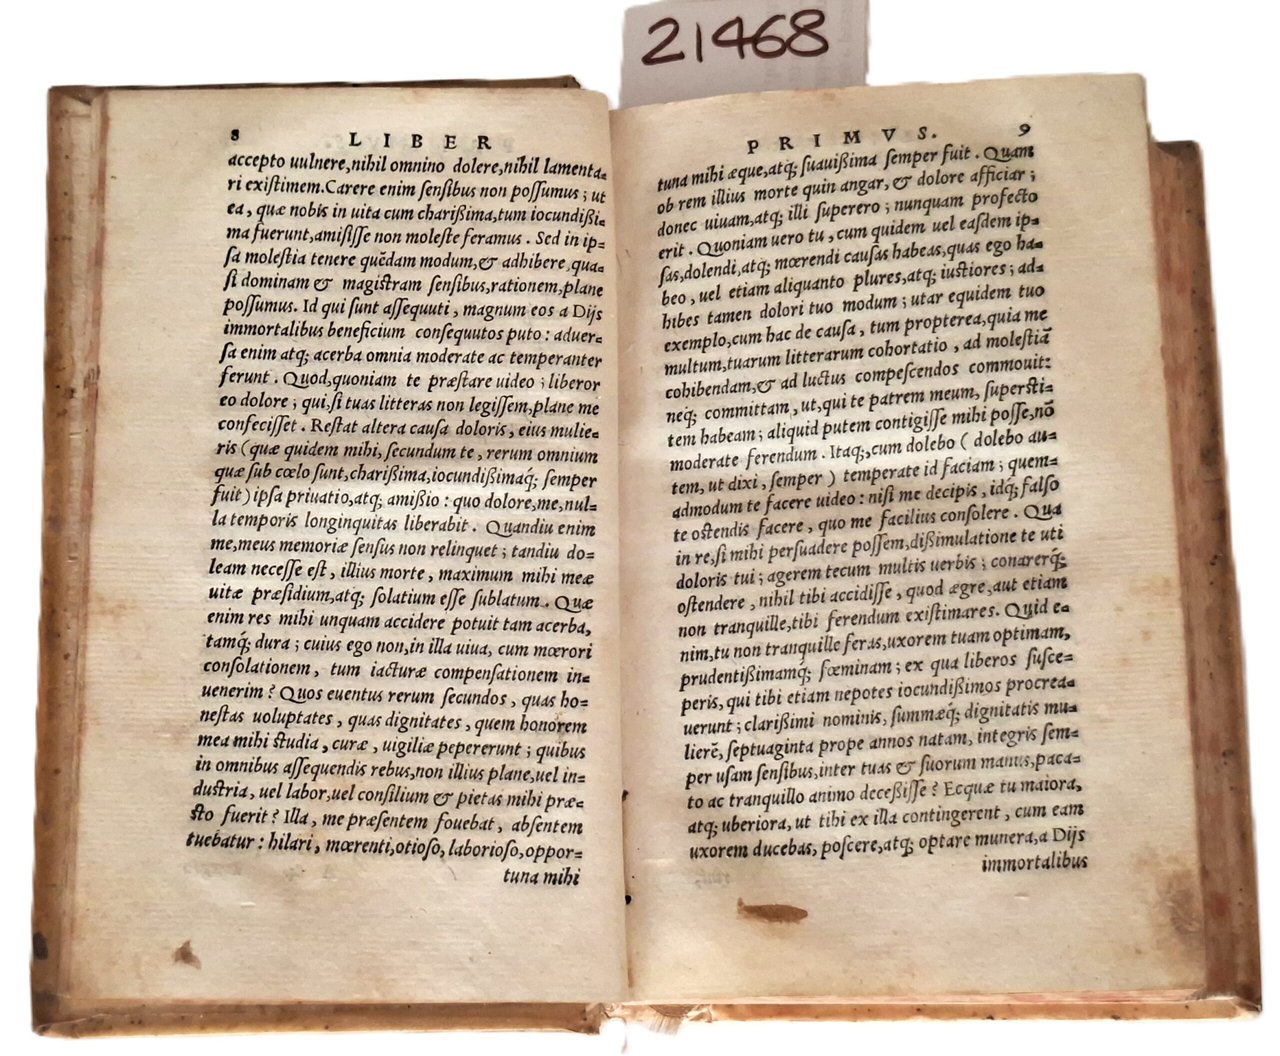 21468
8 LIBER
accepto uulnere, nihil omnino dolere, nihil lamenta-
ri existimem. Carere enim sensibus non possumus; ut
ea, quæ nobis in uita cum charißima, tum iocundißi-
ma fuerunt, amisisse non moleste feramus. Sed in ip-
sa molestia tenere quēdam modum, & adhibere, qua-
si dominam & magistram sensibus, rationem, plane
possumus. Id qui sunt assequuti, magnum eos a Dijs
immortalibus beneficium consequutos puto: aduer-
sa enim atq; acerba omnia moderate ac temperanter
ferunt. Quod, quoniam te præstare uideo; liberor
eo dolore; qui, si tuas litteras non legissem, plane me
confecisset. Restat altera causa doloris, eius mulie-
ris (quæ quidem mihi, secundum te, rerum omnium
quæ sub cœlo sunt, charißima, iocundißimaq́; semper
fuit) ipsa priuatio, atq; amißio: quo dolore, me, nul-
la temporis longinquitas liberabit. Quandiu enim
me, meus memoriæ sensus non relinquet; tandiu do-
leam necesse est, illius morte, maximum mihi meæ
uitæ præsidium, atq; solatium esse sublatum. Quæ
enim res mihi unquam accidere potuit tam acerba,
tamq́; dura; cuius ego non, in illa uiua, cum mœrori
consolationem, tum iacturæ compensationem in-
uenerim? Quos euentus rerum secundos, quas ho-
nestas uoluptates, quas dignitates, quem honorem
mea mihi studia, curæ, uigiliæ pepererunt; quibus
in omnibus assequendis rebus, non illius plane, uel in-
dustria, uel labor, uel consilium & pietas mihi præ-
sto fuerit? Illa, me præsentem fouebat, absentem
tuebatur: hilari, mœrenti, otioso, laborioso, oppor-
tuna mihi
PRIMVS. 9
tuna mihi æque, atq; suauißima semper fuit. Quam
ob rem illius morte quin angar, & dolore afficiar;
donec uiuam, atq; illi superero; nunquam profecto
erit. Quoniam uero tu, cum quidem uel easdem ip-
sas, dolendi, atq; mœrendi causas habeas, quas ego ha-
beo, uel etiam aliquanto plures, atq; iustiores; ad-
hibes tamen dolori tuo modum; utar equidem tuo
exemplo, cum hac de causa, tum propterea, quia me
multum, tuarum litterarum cohortatio, ad molestiā
cohibendam, & ad luctus compescendos commouit:
neq́; committam, ut, qui te patrem meum, supersti-
tem habeam; aliquid putem contigisse mihi posse, nō
moderate ferendum. Itaq;, cum dolebo (dolebo au-
tem, ut dixi, semper) temperate id faciam; quem-
admodum te facere uideo: nisi me decipis, idq́; falso
te ostendis facere, quo me facilius consolere. Qua
in re, si mihi persuadere possem, dißimulatione te uti
doloris tui; agerem tecum multis uerbis; conarerq́;
ostendere, nihil tibi accidisse, quod ægre, aut etiam
non tranquille, tibi ferendum existimares. Quid e-
nim, tu non tranquille feras, uxorem tuam optimam,
prudentißimamq́; fœminam; ex qua liberos susce-
peris, qui tibi etiam nepotes iocundißimos procrea-
uerunt; clarißimi nominis, summæq́; dignitatis mu-
lierē, septuaginta prope annos natam, integris sem-
per usam sensibus, inter tuas & suorum manus, paca-
to ac tranquillo animo deceßisse? Ecquæ tu maiora,
atq; uberiora, ut tibi ex illa contingerent, cum eam
uxorem ducebas, poscere, atq; optare munera, a Dijs
immortalibus